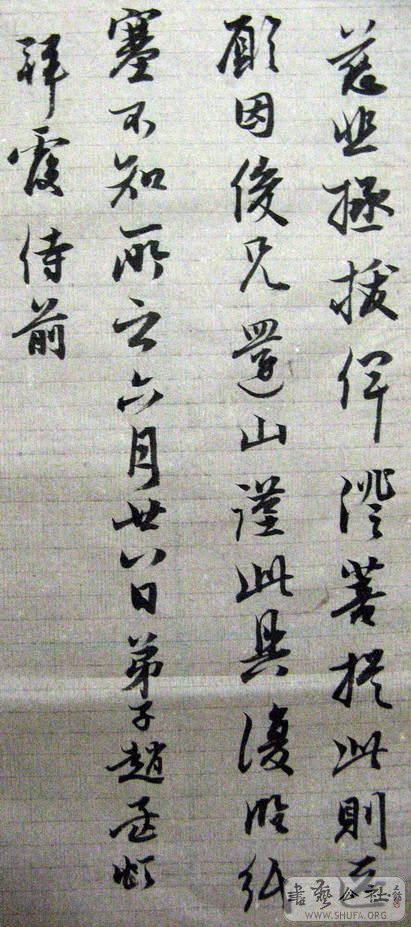 慈悲拯拔俾證菩提此則
願因俊兄還山謹此具復臨紙
塞不知所云六月廿八日弟子趙孟頫
拜覆侍前
書藝公社
WWW.SHUFA.ORG